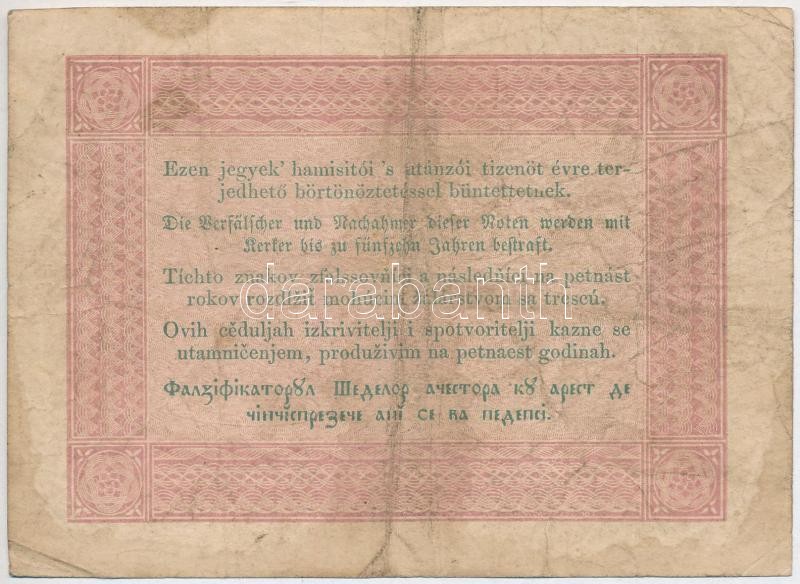 Ezen jegyek' hamisitói 's utánzói tizenöt évre ter-
jedhető börtönöztetéssel büntettetnek.
Die Verfälscher und Nachahmer dieser Noten werden mit
Kerker bis zu fünfzehn Jahren bestraft.
Tíchto znakov a následňíci na petnást
rokov rozdĺžiť mohúcim žalárstvom sa trescú.
darabanth
Ovih cěduljah izkrivitelji i spotvoritelji kazne se
utamničenjem, produživim na petnaest godinah.
Фалзіфікаторꙋл Шеделор ачестора кꙋ арест де
чінчіспрезече ані се ва педепсі.